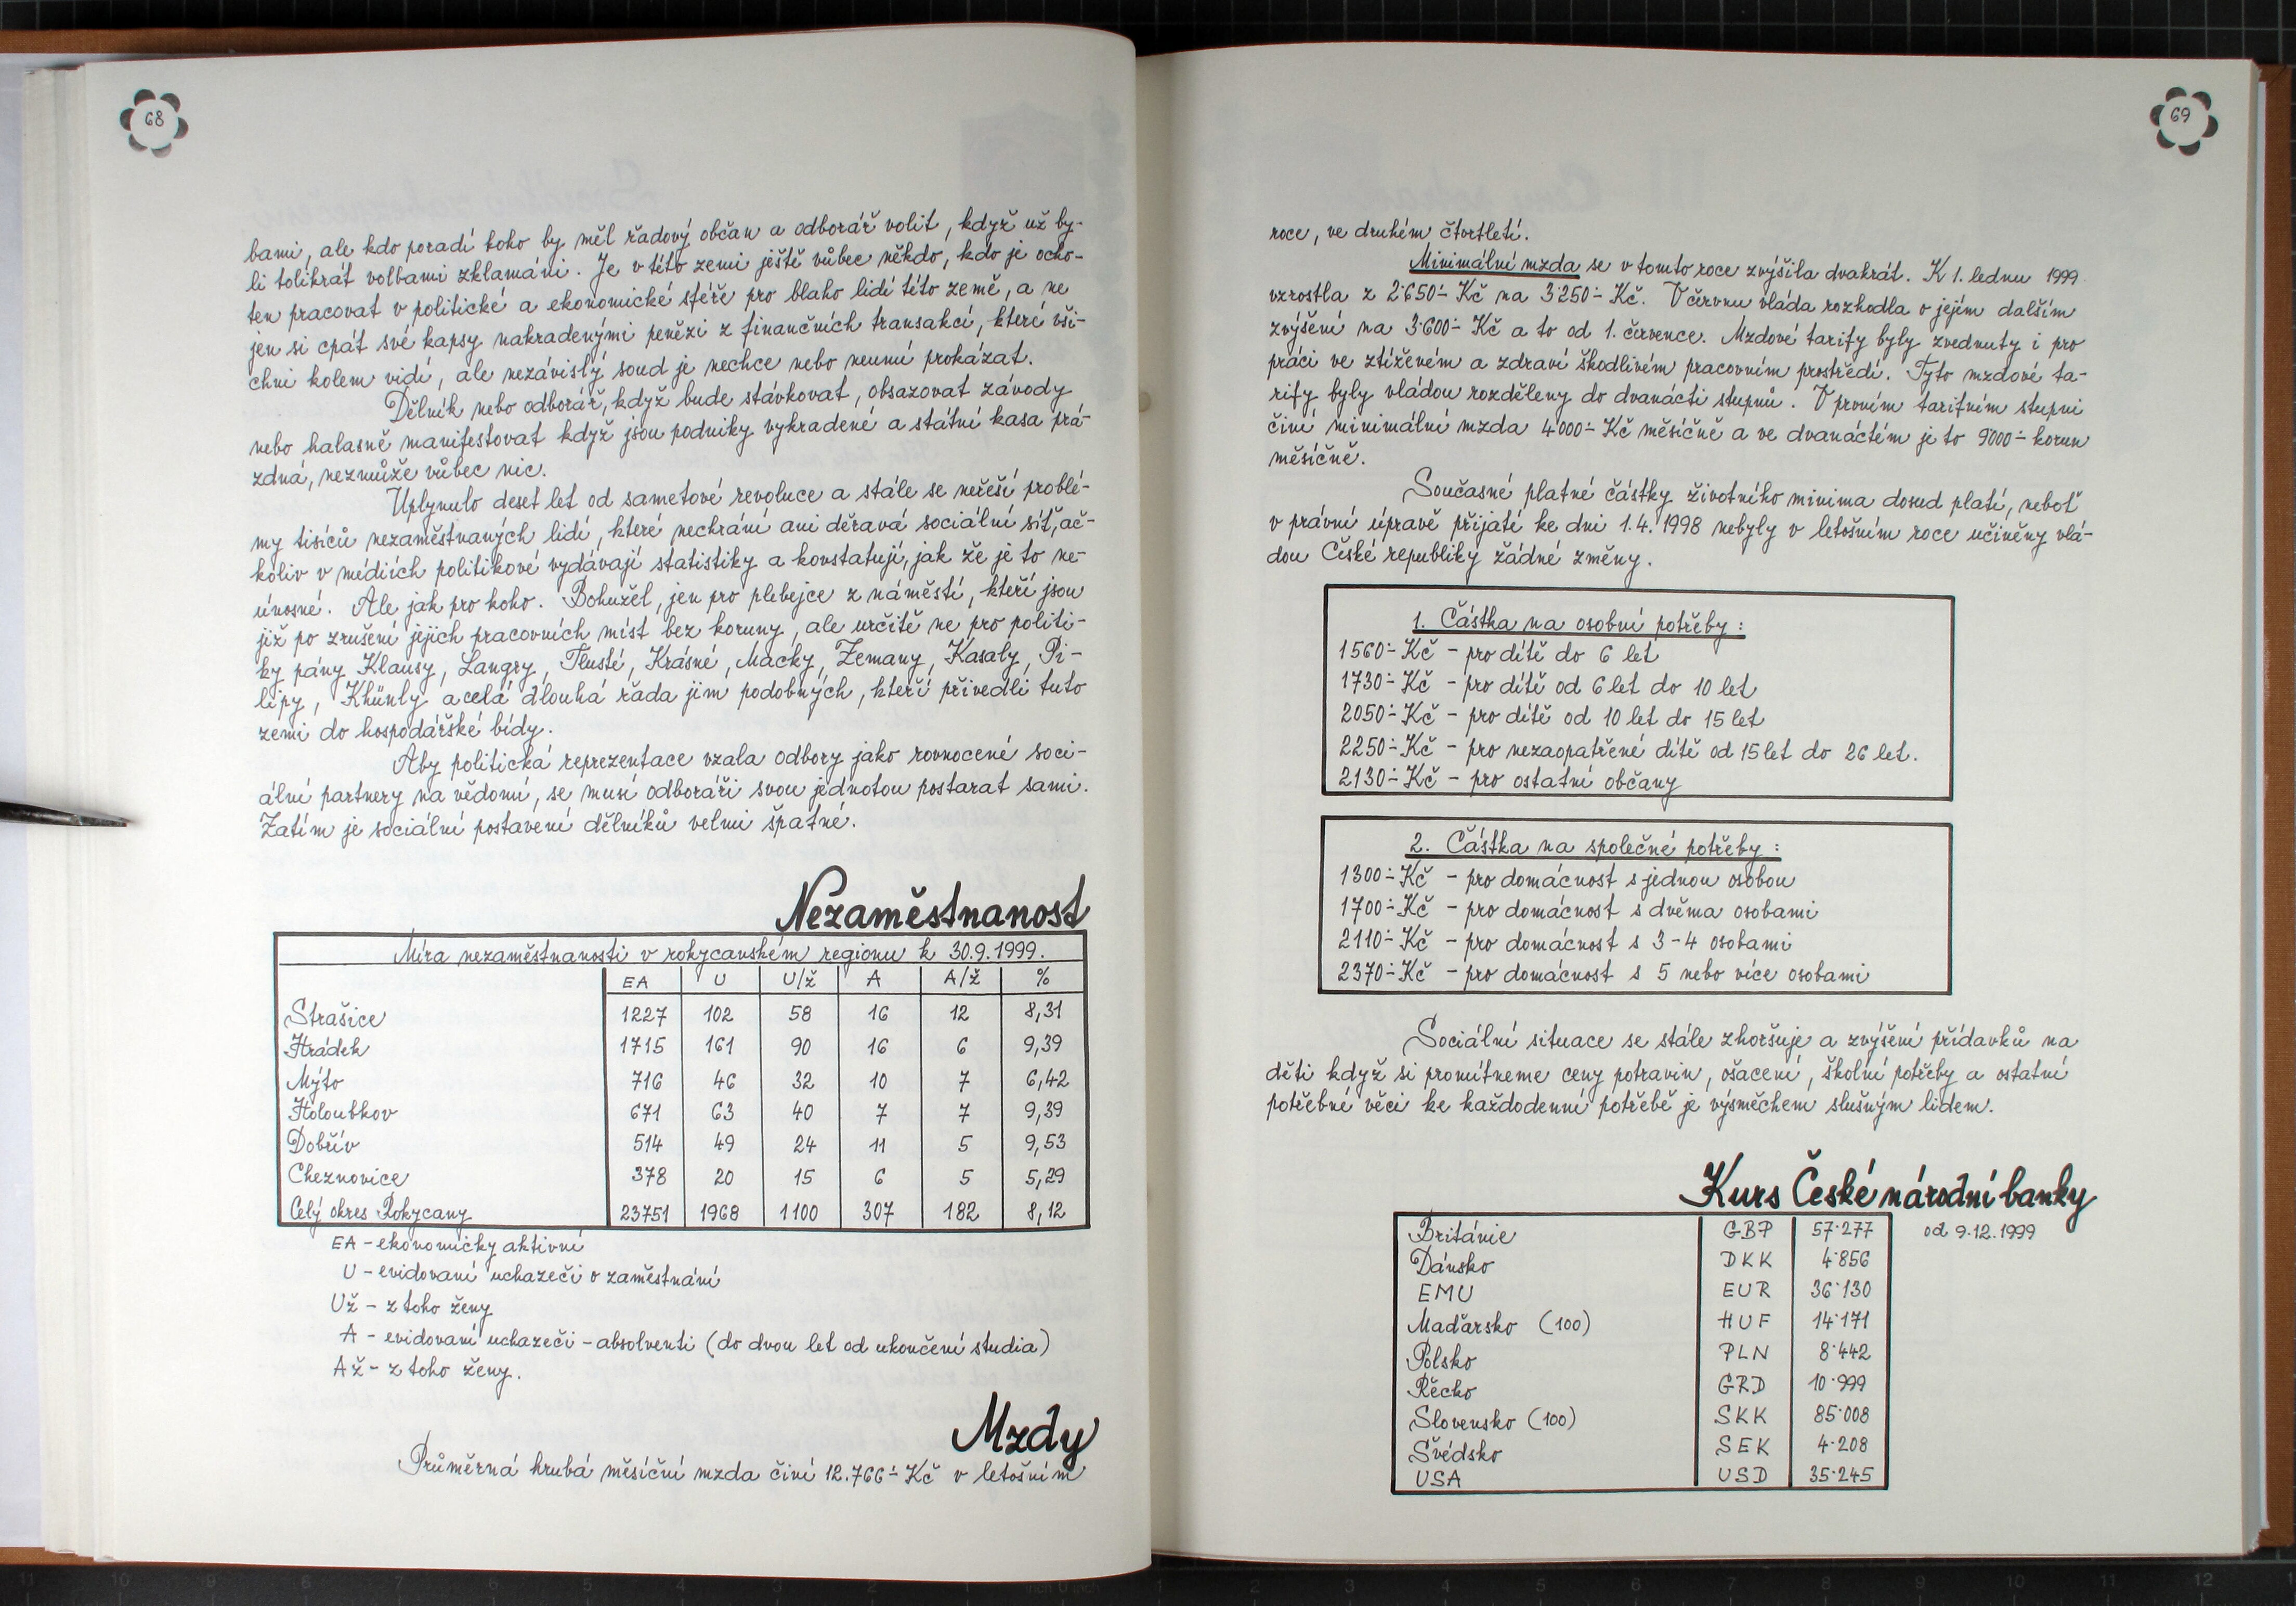 68
bami, ale kdo poradí koho by měl řadový občan a odborář volit, když už by-
li tolikrát volbami zklamáni. Je v této zemi ještě vůbec někdo, kdo je ocho-
ten pracovat v politické a ekonomické sféře pro blaho lidí této země, a ne
jen si cpát své kapsy nakradenými penězi z finančních transakcí, které vši-
chni kolem vidí, ale nezávislý soud je nechce nebo neumí prokázat.
Dělník nebo odborář, když bude stávkovat, obsazovat závody
nebo halasně manifestovat když jsou podniky vykradené a státní kasa prá-
zdná, nezmůže vůbec nic.
Uplynulo deset let od sametové revoluce a stále se neřeší problé-
my tisíců nezaměstnaných lidí, které nechrání ani děravá sociální síť, ač-
koliv v médiích politikové vydávají statistiky a konstatují, jak že je to ne-
únosné. Ale jak pro koho. Bohužel, jen pro plebejce z náměstí, kteří jsou
již po zrušení jejich pracovních míst bez koruny, ale určitě ne pro politi-
ky pány Klausy, Langry, Tlusté, Krásné, Macky, Zemany, Kasaly, Pi-
lipy, Khünly a celá dlouhá řada jim podobných, kteří přivedli tuto
zemi do hospodářské bídy.
Aby politická reprezentace vzala odbory jako rovnocené soci-
ální partnery na vědomí, se musí odboráři svou jednotou postarat sami.
Zatím je sociální postavení dělníků velmi špatné.
Nezaměstnanost
Míra nezaměstnanosti v rokycanském regionu k 30.9.1999.
EA U U/ž A A/ž %
Strašice 1227 102 58 16 12 8,31
Hrádek 1715 161 90 16 6 9,39
Mýto 716 46 32 10 7 6,42
Holoubkov 671 63 40 7 7 9,39
Dobřív 514 49 24 11 5 9,53
Cheznovice 378 20 15 6 5 5,29
Celý okres Rokycany 23751 1968 1100 307 182 8,12
EA - ekonomicky aktivní
U - evidovaní uchazeči o zaměstnání
Už - z toho ženy
A - evidovaní uchazeči - absolventi (do dvou let od ukončení studia)
Až - z toho ženy.
Mzdy
Průměrná hrubá měsíční mzda činí 12.766÷ Kč v letošním
69
roce, ve druhém čtvrtletí.
Minimální mzda se v tomto roce zvýšila dvakrát. K 1. lednu 1999
vzrostla z 2˙650÷ Kč na 3˙250÷ Kč. V červnu vláda rozhodla o jejím dalším
zvýšení na 3˙600÷ Kč a to od 1. července. Mzdové tarify byly zvednuty i pro
práci ve ztíženém a zdraví škodlivém pracovním prostředí. Tyto mzdové ta-
rify byly vládou rozděleny do dvanácti stupňů. V prvním tarifním stupni
činí minimální mzda 4˙000÷ Kč měsíčně a ve dvanáctém je to 9˙000÷ korun
měsíčně.
Současné platné částky životního minima dosud platí, neboť
v právní úpravě přijaté ke dni 1.4.1998 nebyly v letošním roce učiněny vlá-
dou České republiky žádné změny.
1. Částka na osobní potřeby:
1560÷ Kč - pro dítě do 6 let
1730÷ Kč - pro dítě od 6 let do 10 let
2050÷ Kč - pro dítě od 10 let do 15 let
2250÷ Kč - pro nezaopatřené dítě od 15 let do 26 let.
2130÷ Kč - pro ostatní občany
2. Částka na společné potřeby:
1300÷ Kč - pro domácnost s jednou osobou
1700÷ Kč - pro domácnost s dvěma osobami
2110÷ Kč - pro domácnost s 3-4 osobami
2370÷ Kč - pro domácnost s 5 nebo více osobami
Sociální situace se stále zhoršuje a zvýšení přídavků na
děti když si promítneme ceny potravin, ošacení, školní potřeby a ostatní
potřebné věci ke každodenní potřebě je výsměchem slušným lidem.
Kurs České národní banky
Británie GBP 57˙277 od 9.12.1999
Dánsko DKK 4˙856
EMU EUR 36˙130
Maďarsko (100) HUF 14˙171
Polsko PLN 8˙442
Řecko GRD 10˙999
Slovensko (100) SKK 85˙008
Švédsko SEK 4˙208
USA USD 35˙245